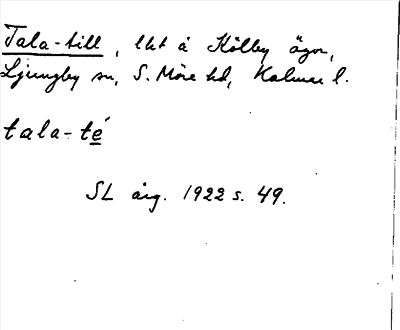 Tala-till, lkt å Kölby ägor,
Ljungby sn, S. Möre hd, Kalmar l.
tala-té
SL årg. 1922 s. 49.